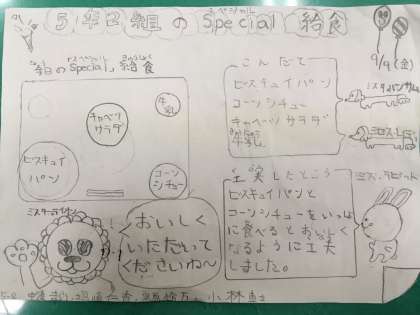 5年3組のSpecial給食
スペシャル
9/9(金)
組のSpecial給食
スペシャル
牛乳
キャベツ
サラダ
ビスキュイ
パン
コーン
シチュー
こんだて
ビスキュイパン
コーンシチュー
キャベツサラダ
牛乳
工夫したところ
ビスキュイパンと
コーンシチューをいっしょ
に食べるとおいしく
なるように工夫
しました。
ミスターライオン
おいしく
いただいて
くださいね〜
ミス・ラビット
小林